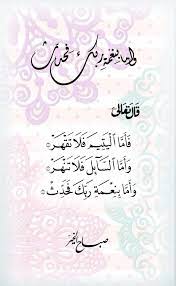 وأما بنعمة ربك فحدث
قال تعالى
فَأَمَّا الْيَتِيمَ فَلَا تَقْهَرْ
وَأَمَّا السَّائِلَ فَلَا تَنْهَرْ
وَأَمَّا بِنِعْمَةِ رَبِّكَ فَحَدِّثْ
صباح الخير